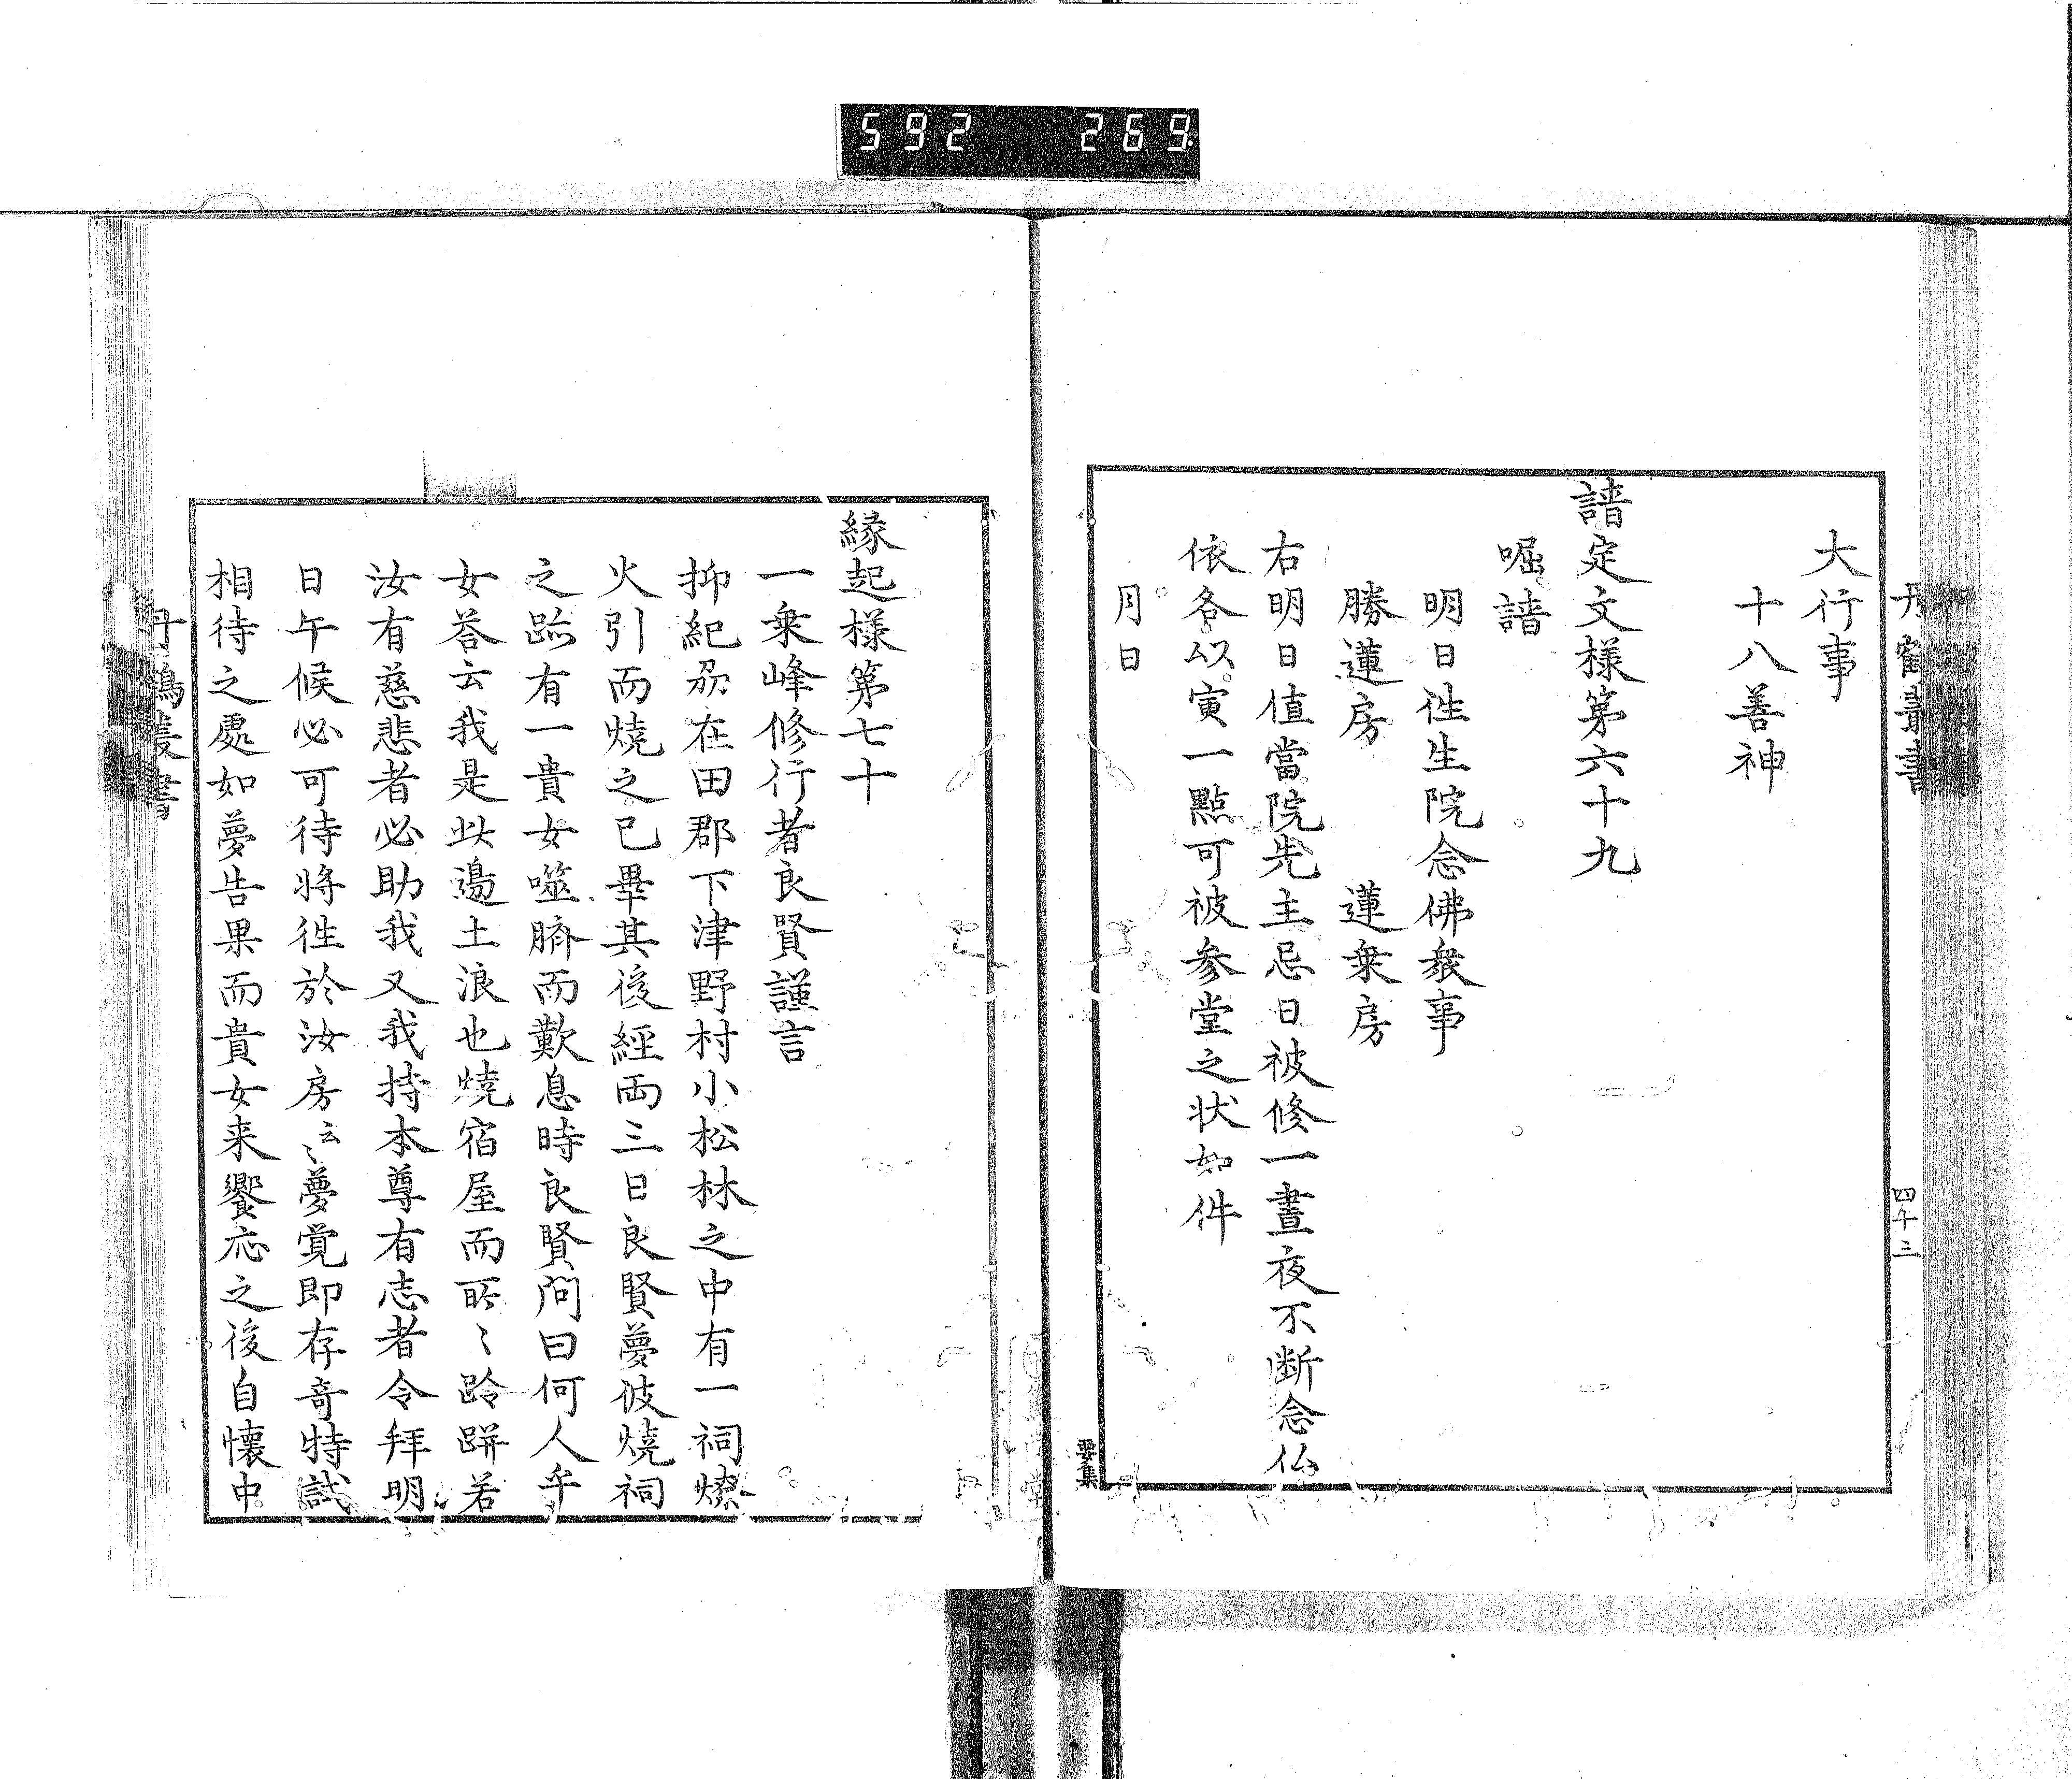 592 269
丹鶴叢書
四十三
大行事
十八善神
諳定文様第六十九
啒諳
明日往生院念佛衆事
勝蓮房 蓮乗房
右明日值當院先主忌日被修一晝夜不断念仏
依各以寅一點可被参堂之状如件
月日
要集
縁起様第七十
一乗峰修行者良賢謹言
抑紀州在田郡下津野村小松林之中有一祠燎
火引而燒之已畢其後經両三日良賢夢彼燒祠
之跡有一貴女噬臍而歎息時良賢問曰何人乎
女荅云我是此邊土浪也燒宿屋而所〻跉跰若
汝有慈悲者必助我又我持本尊有志者令拜明
日午候必可待将徃於汝房云〻夢覚即存奇特試
相待之處如夢告果而貴女来饗応之後自懐中
丹鶴叢書